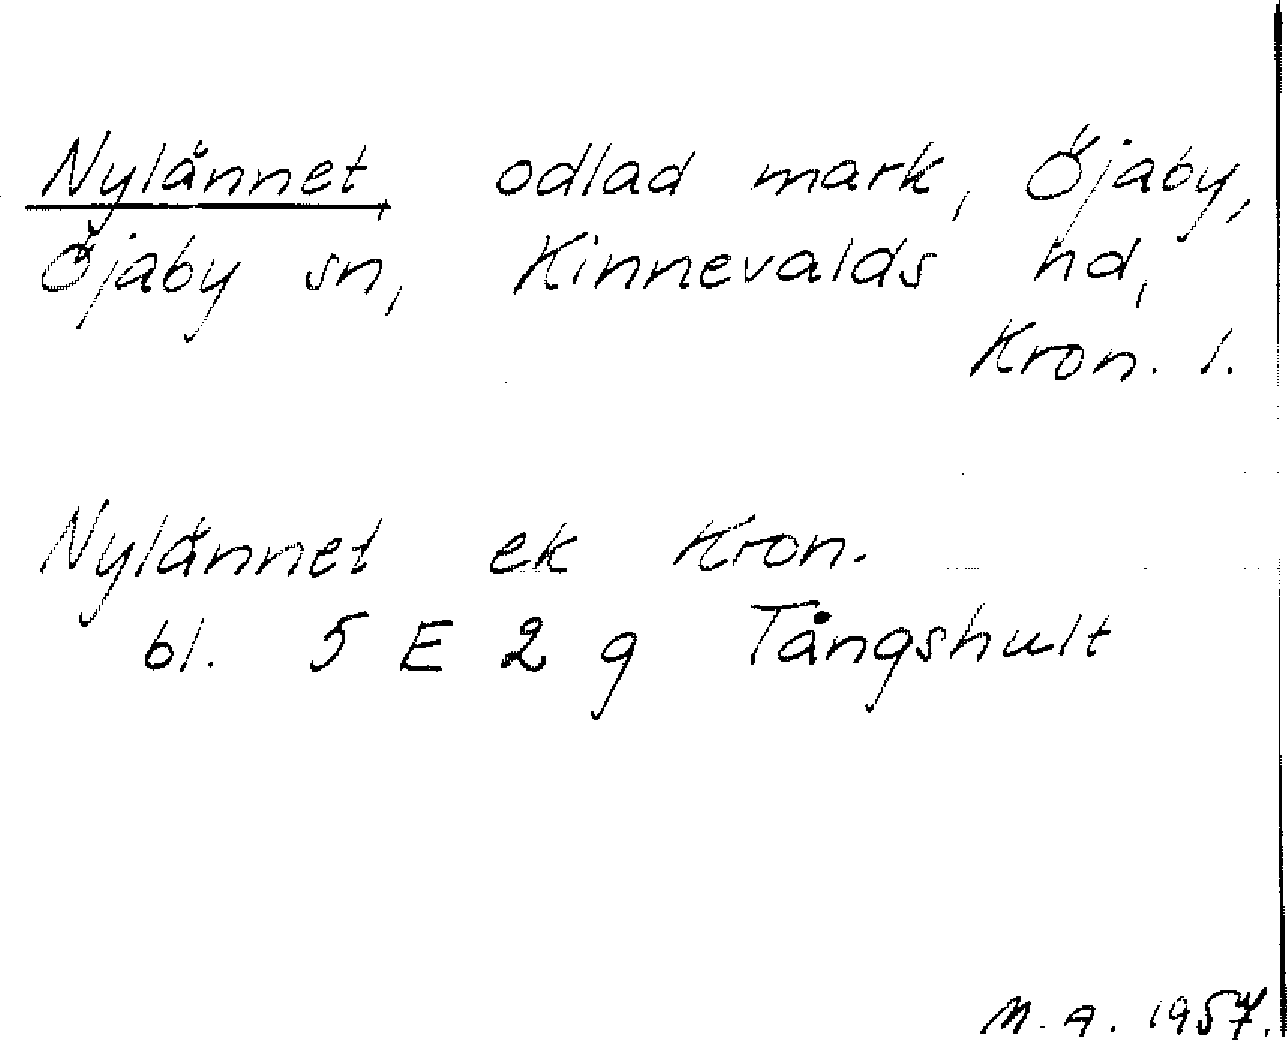 Nylännet, odlad mark, Öjaby,
Öjaby sn, Kinnevalds hd,
Kron. l.
Nylännet ek Kron.
bl. 5 E 2 g Tångshult
M. A. 1957.